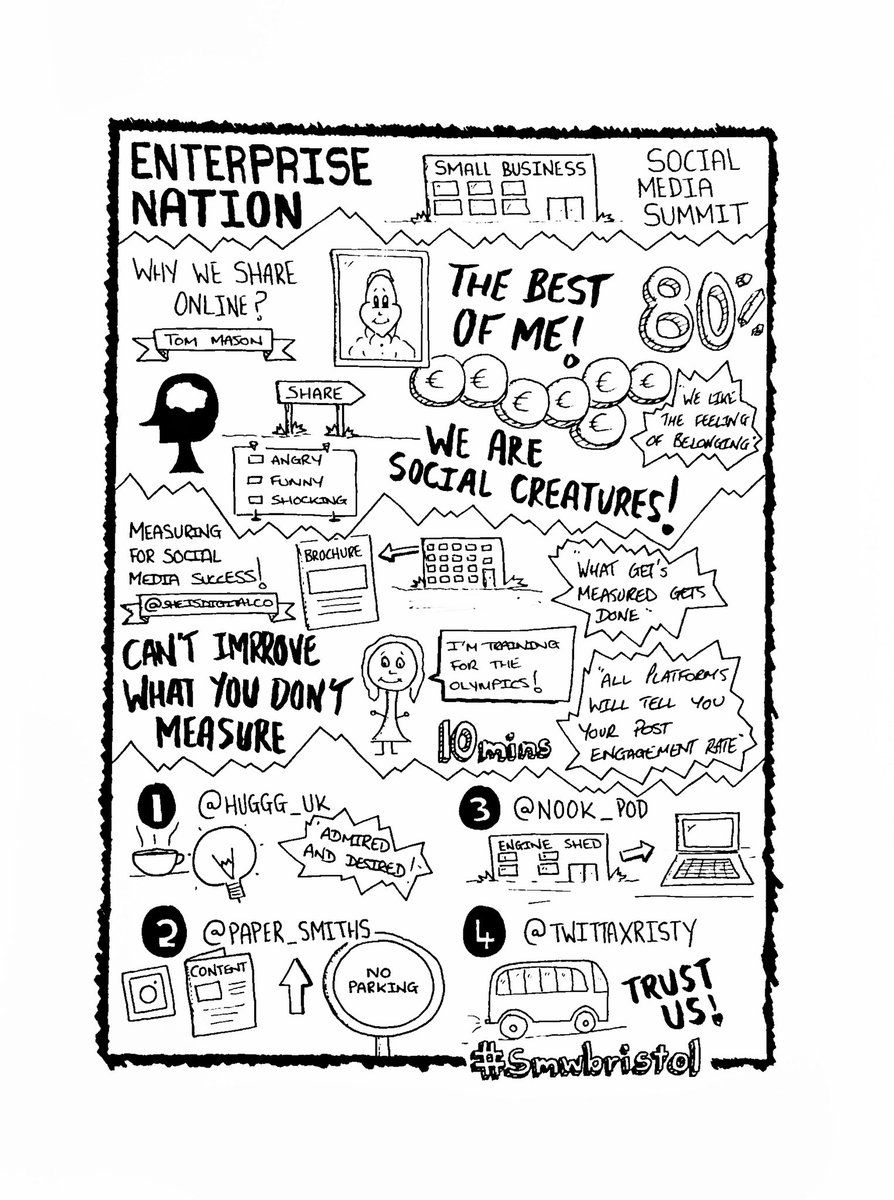 ENTERPRISE
NATION
SMALL BUSINESS
SOCIAL
MEDIA
SUMMIT
WHY WE SHARE
ONLINE?
TOM MASON
THE BEST
OF ME!
80%
€ € € € € € €
"WE LIKE
THE FEELING
OF BELONGING"
SHARE
ANGRY
FUNNY
SHOCKING
WE ARE
SOCIAL CREATURES!
MEASURING
FOR SOCIAL
MEDIA SUCCESS!
@SHEISDIGITALCO
BROCHURE
"WHAT GET'S
MEASURED GETS
DONE"
CAN'T IMPROVE
WHAT YOU DON'T
MEASURE
I'M TRAINING
FOR THE
OLYMPICS!
10 mins
"ALL PLATFORMS
WILL TELL YOU
YOUR POST
ENGAGEMENT RATE"
1 @HUGGG_UK
"ADMIRED
AND DESIRED!"
2 @PAPER_SMITHS
CONTENT
NO
PARKING
3 @NOOK_POD
ENGINE SHED
4 @TWITTAXRISTY
TRUST
US!
#Smwbristol